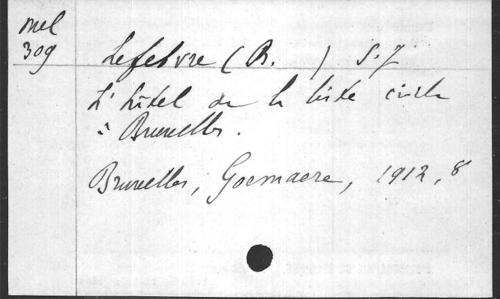 mel
309
Lefebvre (B. ) S.J
L'hôtel de la liste civile
à Bruxelles.
Bruxelles, Goemaere, 1912, 8